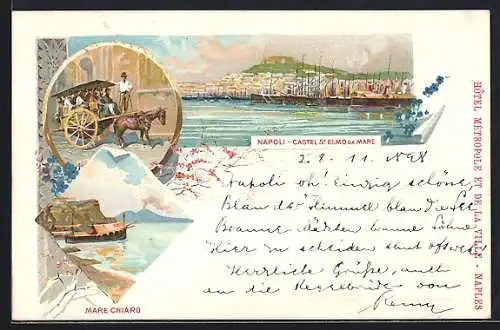 NAPOLI - CASTEL St ELMO DA MARE
2. 8. 11. 1898
Napoli oh! Einzig schöne,
Blau der Himmel blau die See
Braune Mädchen braune Söhne
Hier zu scheiden
Herzliche Grüße, auch
an die Kegelbrüder von
MARE CHIARO
HÔTEL MÉTROPOLE ET DE LA VILLE - NAPLES